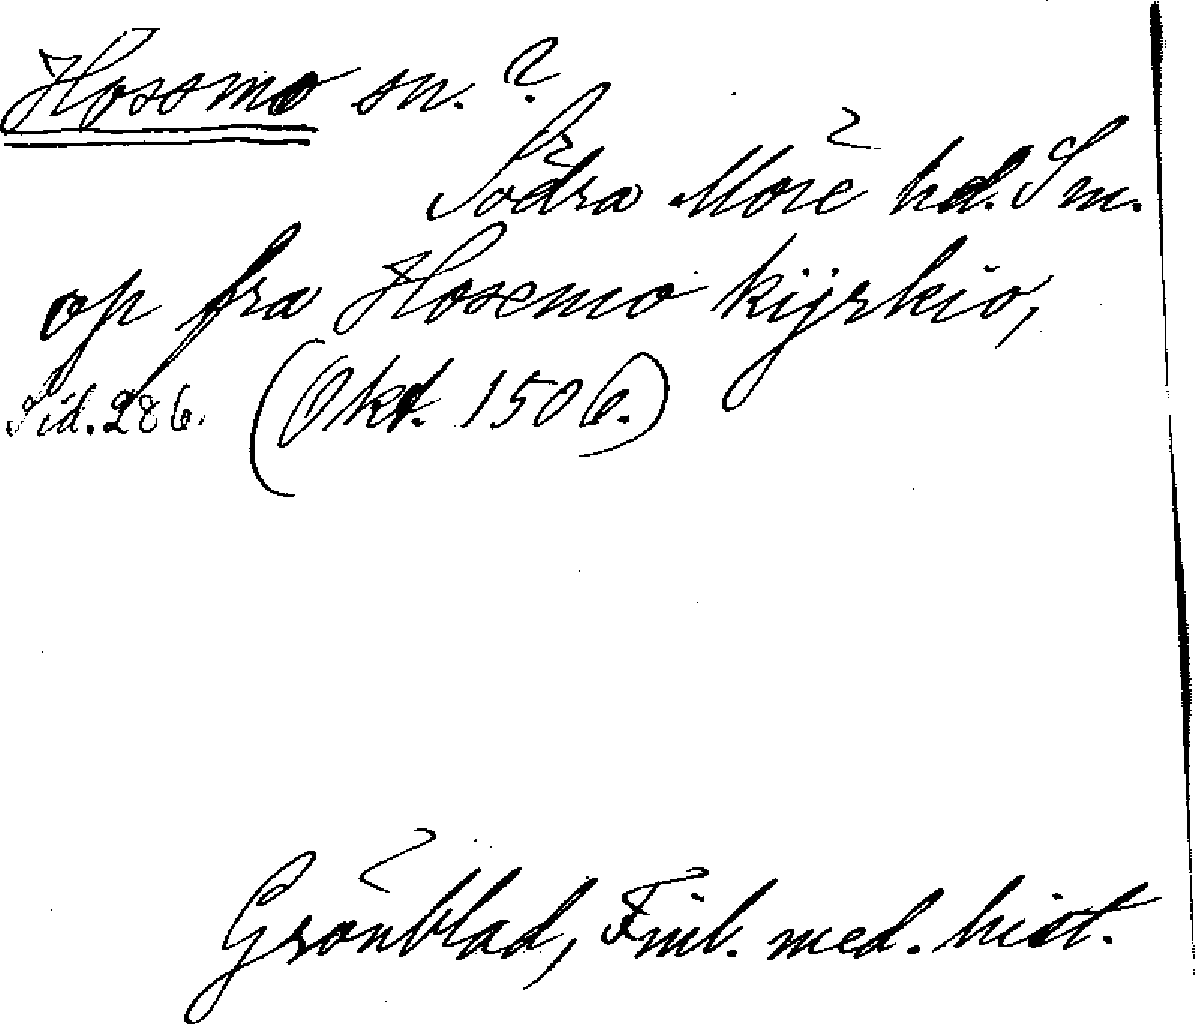 Hossmo sn. ?
Södra Möre hd. Sm.
op fra Hosemo kijrkio,
Sid. 286. (Okt. 1506.)
Grönblad, Finl. med. hist.